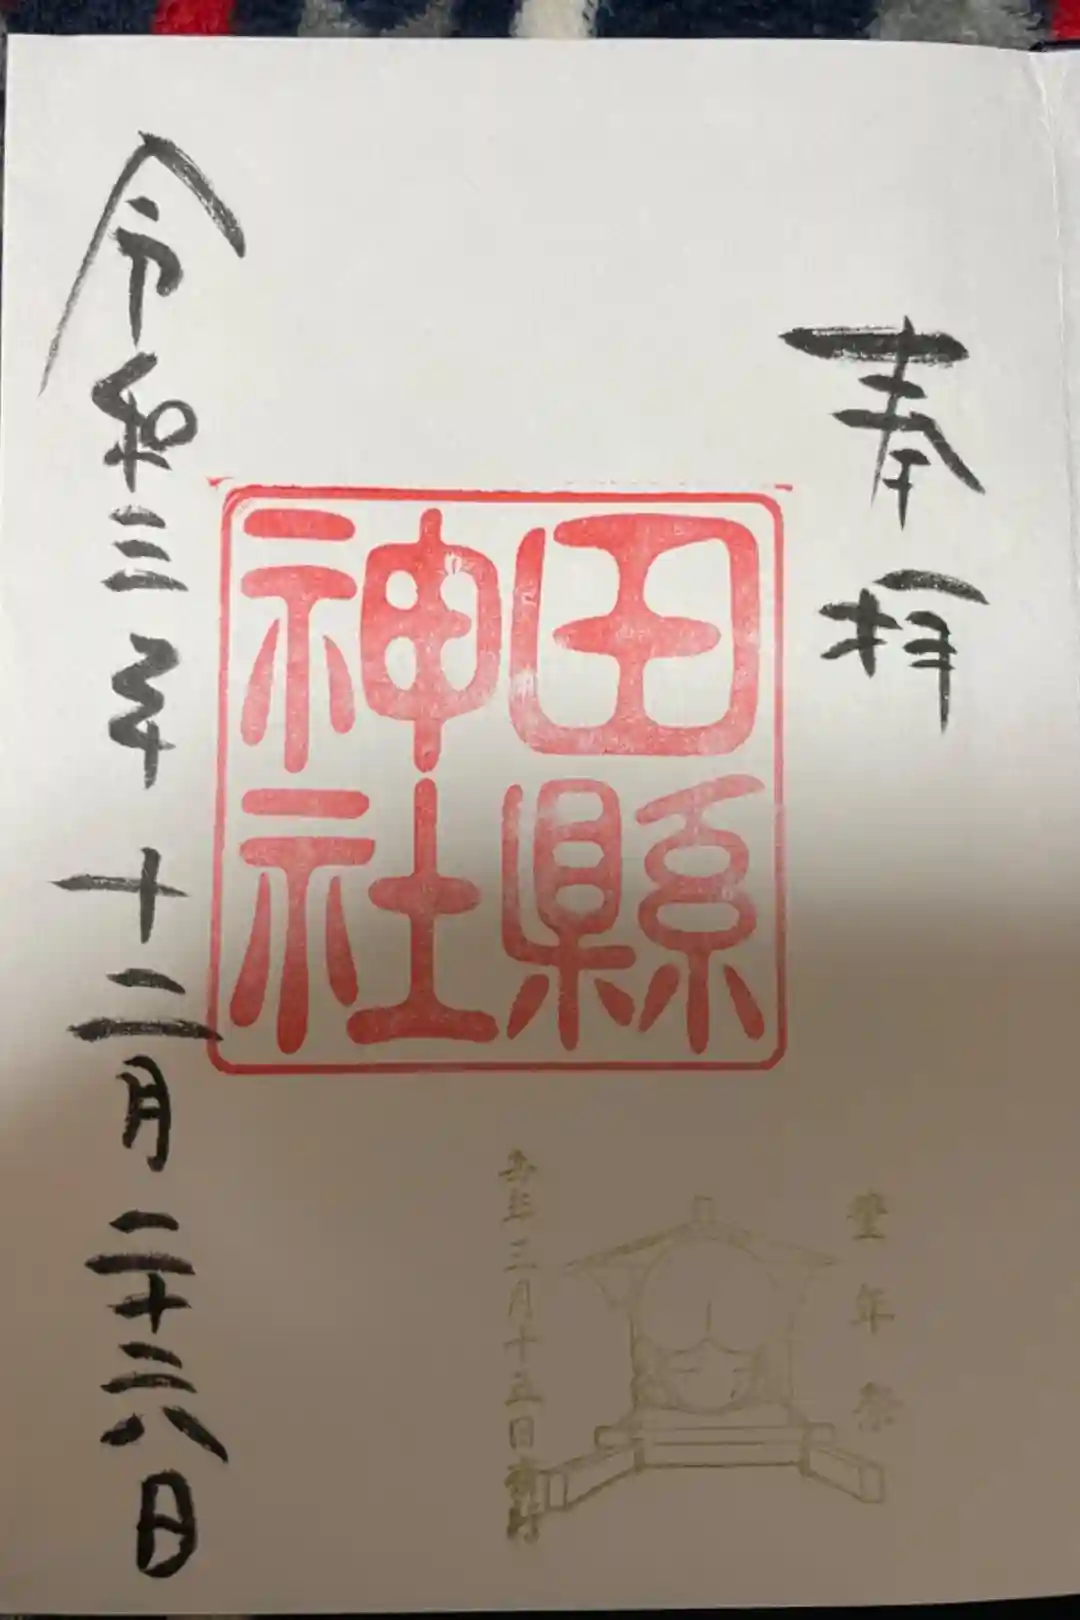 奉拝
田縣
神社
豊年祭
毎年三月十五日
令和三年十二月二十六日